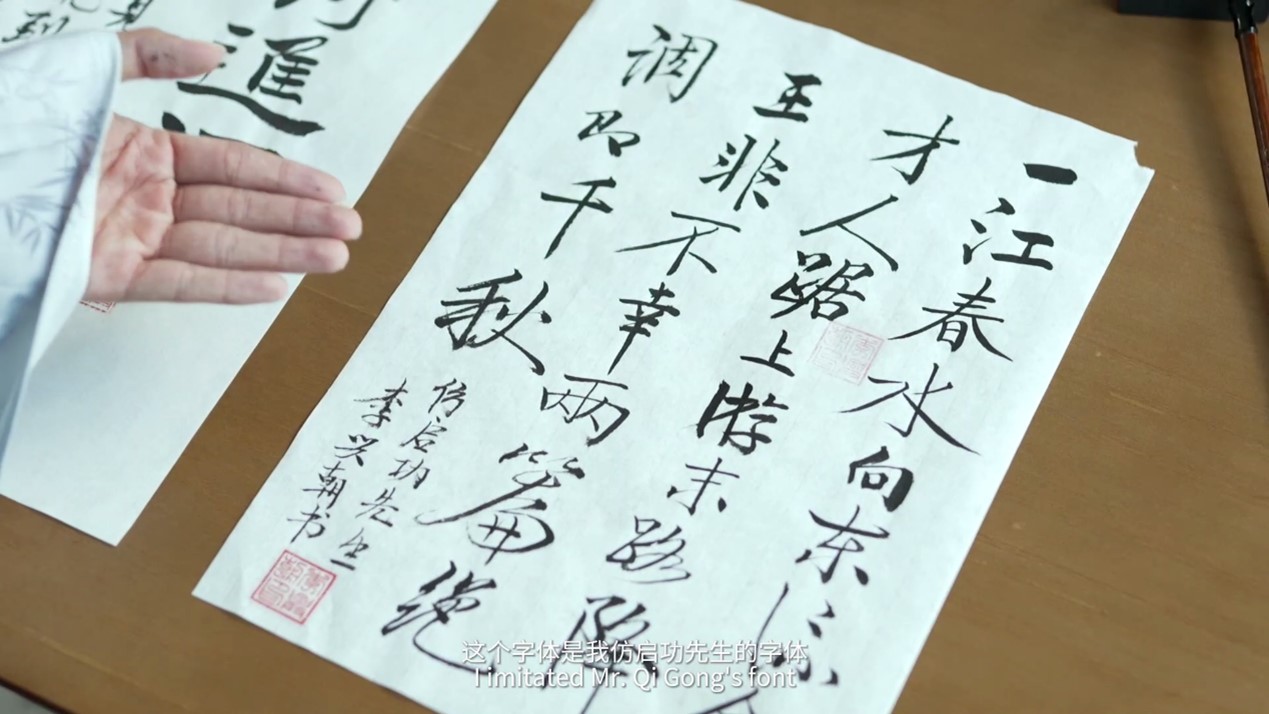 一江春水向东流
才人踞上游末路降
王非不幸两篇绝
调即千秋
仿启功先生
李兴朝书
進
到
这个字体是我仿启功先生的字体
I imitated Mr. Qi Gong's font